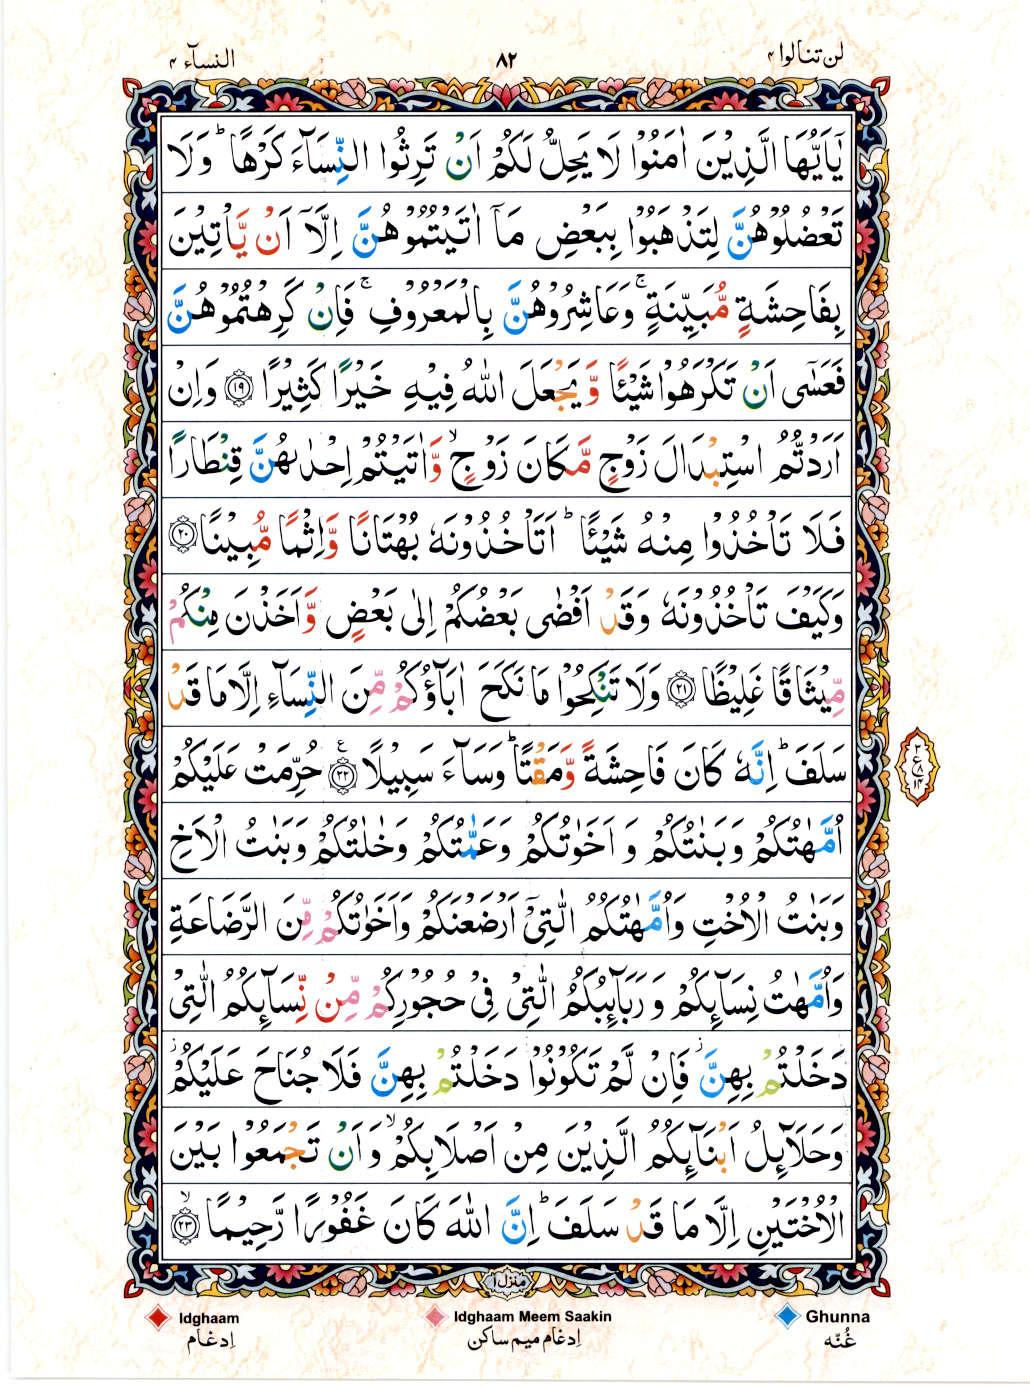 لن تنالوا ۴
۸۲
النسآء ۴
يٰۤاَيُّهَا الَّذِيْنَ اٰمَنُوْا لَا يَحِلُّ لَكُمْ اَنْ تَرِثُوا النِّسَآءَ كَرْهًا ؕ وَلَا
تَعْضُلُوْهُنَّ لِتَذْهَبُوْا بِبَعْضِ مَاۤ اٰتَيْتُمُوْهُنَّ اِلَّاۤ اَنْ يَّاْتِيْنَ
بِفَاحِشَةٍ مُّبَيِّنَةٍ ۚ وَعَاشِرُوْهُنَّ بِالْمَعْرُوْفِ ۚ فَاِنْ كَرِهْتُمُوْهُنَّ
فَعَسٰۤى اَنْ تَكْرَهُوْا شَيْـًٔا وَّيَجْعَلَ اللّٰهُ فِيْهِ خَيْرًا كَثِيْرًا ۝۱۹ وَاِنْ
اَرَدْتُّمُ اسْتِبْدَالَ زَوْجٍ مَّكَانَ زَوْجٍ ۙ وَّاٰتَيْتُمْ اِحْدٰىهُنَّ قِنْطَارًا
فَلَا تَاْخُذُوْا مِنْهُ شَيْـًٔا ؕ اَتَاْخُذُوْنَهٗ بُهْتَانًا وَّاِثْمًا مُّبِيْنًا ۝۲۰
وَكَيْفَ تَاْخُذُوْنَهٗ وَقَدْ اَفْضٰى بَعْضُكُمْ اِلٰى بَعْضٍ وَّاَخَذْنَ مِنْكُمْ
مِّيْثَاقًا غَلِيْظًا ۝۲۱ وَلَا تَنْكِحُوْا مَا نَكَحَ اٰبَآؤُكُمْ مِّنَ النِّسَآءِ اِلَّا مَا قَدْ
سَلَفَ ؕ اِنَّهٗ كَانَ فَاحِشَةً وَّمَقْتًا ؕ وَسَآءَ سَبِيْلًا ۝۲۲ ع حُرِّمَتْ عَلَيْكُمْ
اُمَّهٰتُكُمْ وَبَنٰتُكُمْ وَ اَخَوٰتُكُمْ وَعَمّٰتُكُمْ وَخٰلٰتُكُمْ وَبَنٰتُ الْاَخِ
وَبَنٰتُ الْاُخْتِ وَاُمَّهٰتُكُمُ الّٰتِيْۤ اَرْضَعْنَكُمْ وَاَخَوٰتُكُمْ مِّنَ الرَّضَاعَةِ
وَاُمَّهٰتُ نِسَآىِٕكُمْ وَ رَبَآىِٕبُكُمُ الّٰتِيْ فِيْ حُجُوْرِكُمْ مِّنْ نِّسَآىِٕكُمُ الّٰتِيْ
دَخَلْتُمْ بِهِنَّ ؗ فَاِنْ لَّمْ تَكُوْنُوْا دَخَلْتُمْ بِهِنَّ فَلَا جُنَاحَ عَلَيْكُمْ ؗ
وَحَلَآىِٕلُ اَبْنَآىِٕكُمُ الَّذِيْنَ مِنْ اَصْلَابِكُمْ ۙ وَ اَنْ تَجْمَعُوْا بَيْنَ
الْاُخْتَيْنِ اِلَّا مَا قَدْ سَلَفَ ؕ اِنَّ اللّٰهَ كَانَ غَفُوْرًا رَّحِيْمًا ۝۲۳ ۙ
منزل ۱
Idghaam
Idghaam Meem Saakin
Ghunna
اِدغام
اِدغام میم ساکن
غُنّه